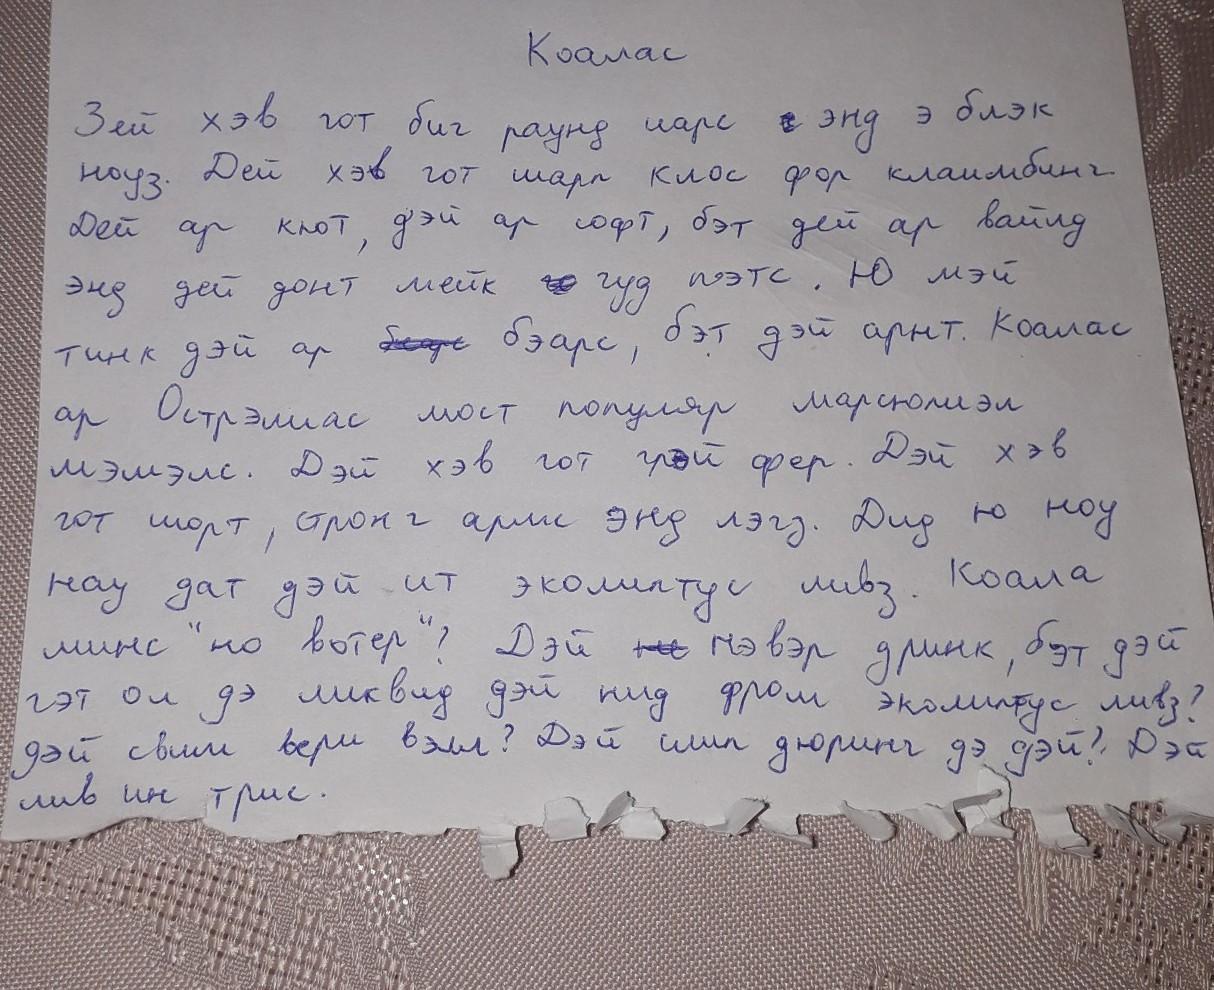 Коалас
Зей хэв гот биг раунд иарс энд э блэк
ноуз. Дей хэв гот шарп клос фор клаимбинг
Дей ар кют, дэй ар софт, бэт дей ар вайлд
энд дей донт мейк гуд пэтс. Ю мэй
тинк дэй ар бэарс, бэт дэй арнт. Коалас
ар Острэлиас мост популяр марсюпиэл
мэмэлс. Дэй хэв гот грэй фер. Дэй хэв
гот шорт, стронг армс энд лэгз. Дид ю ноу
нау дат дэй ит эколиптус ливз. Коала
минс "но вотер"? Дэй нэвэр дринк, бэт дэй
гэт ол дэ ликвид дэй нид фром эколиптус ливз?
дэй свим вери вэлл? Дэй слип дюринг дэ дэй? Дэй
лив ин трис.